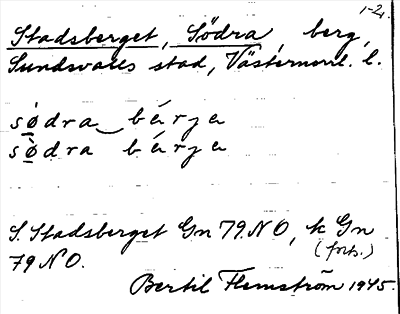 1-2.
Stadsberget, Södra, berg,
Sundsvalls stad, Västernorrl. l.
sö́dra bérje
sö̀dra bérje
S. Stadsberget Gn 79 NO, k Gn
79 NO. (forts.)
Bertil Flemström 1945.